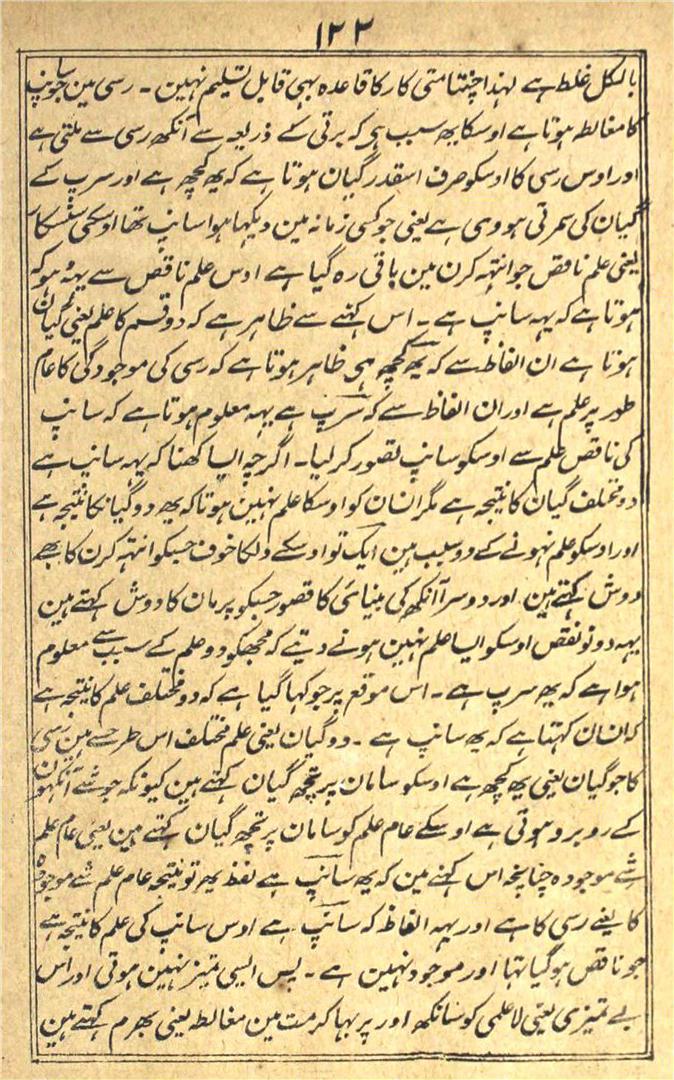 ۱۲۲
بالکل غلط ہے لہذا چنتامنی کار کا قاعدہ بہی قابل تسلیم نہین ۔ رسی مین جو سانپ
کا مغالطہ ہوتا ہے اوسکا یہہ سبب ہی کہ برتی کے ذریعہ سے آنکھ رسی سے ملتی ہے
اور اوس رسی کا اوسکو صرف اسقدر گیان ہوتا ہے کہ یہہ کچھ ہے اور سرپ کے
گیان کی سمرتی ہووی ہے یعنی جو کسی زمانہ مین دیکہا ہوا سانپ تہا اوسکی سنسکار
یعنی علم ناقص جو انتہہ کرن مین باقی رہ گیا ہے اوس علم ناقص سے یہہ
ہوتا ہے کہ یہہ سانپ ہے ۔ اس کہنے سے ظاہر ہے کہ دو قسم کا علم یعنی گیان
ہوتا ہے ان الفاظ سے کہ یہہ کچھ ہی ظاہر ہوتا ہے کہ رسی کی موجودگی کا عام
طور پر علم ہے اور ان الفاظ سے کہ سرپ ہے یہہ معلوم ہوتا ہے کہ سانپ
کی ناقص علم سے اوسکو سانپ تصور کر لیا ۔ اگرچہ ایسا کہنا کہ یہہ سانپ ہے
دو مختلف گیان کا نتیجہ ہے مگر انسان کو اوسکا علم نہین ہوتا کہ یہہ دو گیانکا نتیجہ ہے
اور اوسکو علم نہونے کے دو سبب ہین ایک تو اوسکے دلکا خوف جسکو انتہہ کرن کا
دوش کہتے ہین اور دوسرا آنکھ کی بینائی کا قصور جسکو پرمان کا دوش کہتے ہین
یہہ دونو نقص اوسکو ایسا علم نہین ہونے دیتے کہ مجہکو دو علم کے سبب سے معلوم
ہوا ہے کہ یہہ سرپ ہے ۔ اس موقع پر جو کہا گیا ہے کہ دو مختلف علم کا نتیجہ ہے
کہ انسان کہتا ہے کہ یہہ سانپ ہے ۔ دو گیان یعنی علم مختلف اس طرحسے ہین رسی
کا جو گیان یعنی یہہ کچھ ہے اوسکو سامان پرتچھ گیان کہتے ہین کیونکہ جو شے آنکہون
کے روبرو ہوتی ہے اوسکے عام علم کو سامان پرتچھ گیان کہتے ہین یعنی عام علم
شے موجودہ چنانچہ اس کہنے مین کہ یہہ سانپ ہے لفظ یہہ تو نتیجہ عام علم شے موجودہ
کا یعنے رسی کا ہے اور یہہ الفاظ کہ سانپ ہے اوس سانپ کی علم کا نتیجہ ہے
جو ناقص ہو گیا تہا اور موجود نہین ہے ۔ پس ایسی تمیز نہین ہوتی اور اس
بے تمیزی یعنی لاعلمی کو سانکھ اور پربہاکر مت مین مغالطہ یعنی بہرم کہتے ہین